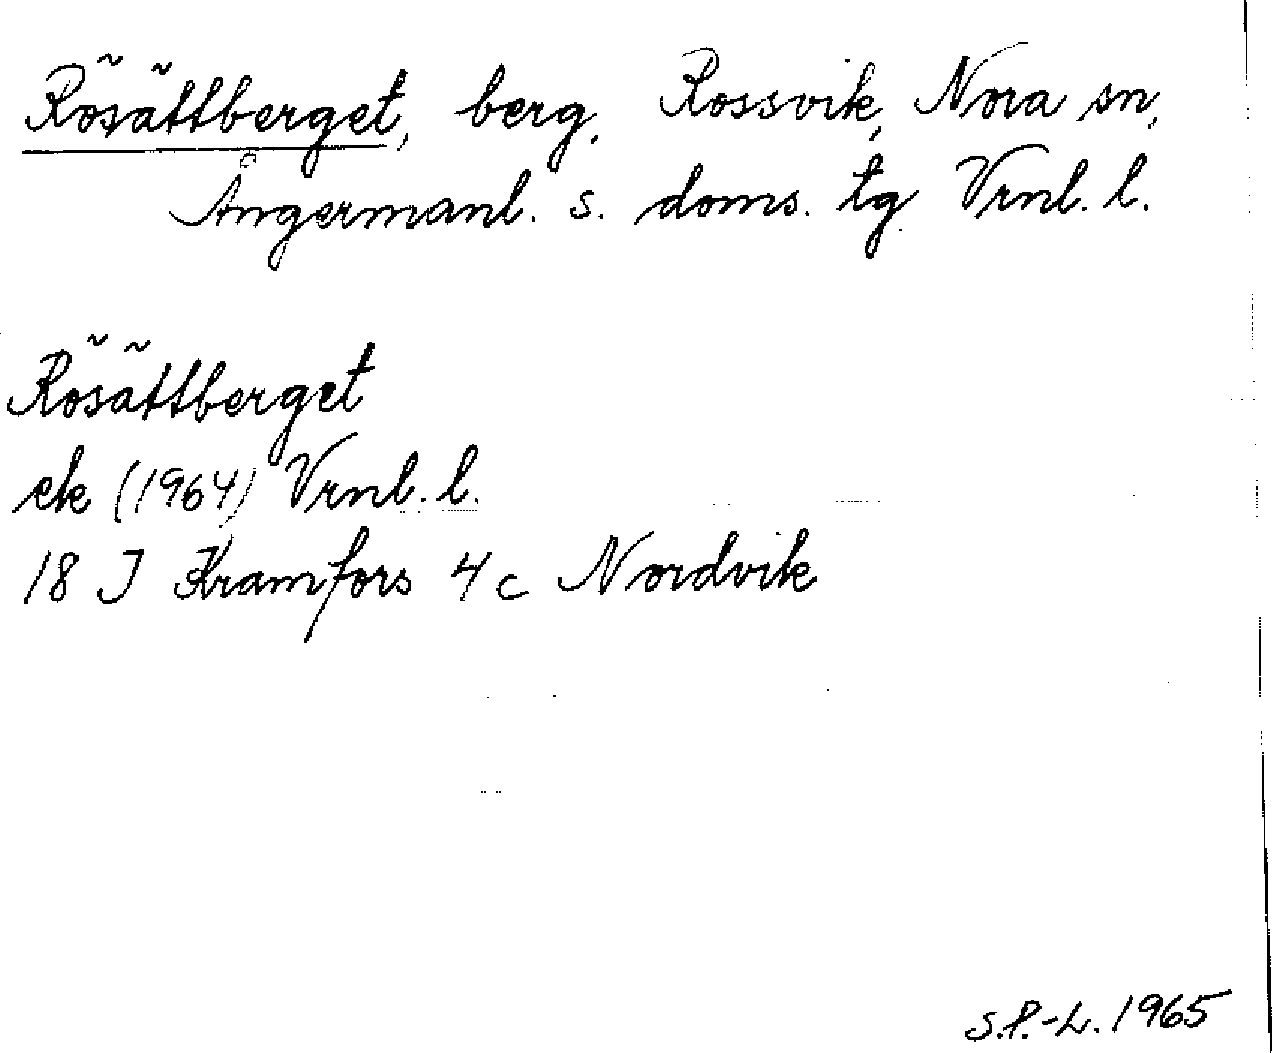 Rösättberget, berg, Rossvik, Nora sn,
Ångermanl. s. doms. tg Vrnl. l.
Rösättberget
ek (1964) Vrnl. l.
18 J Kramfors 4 c Nordvik
S.P.-L. 1965